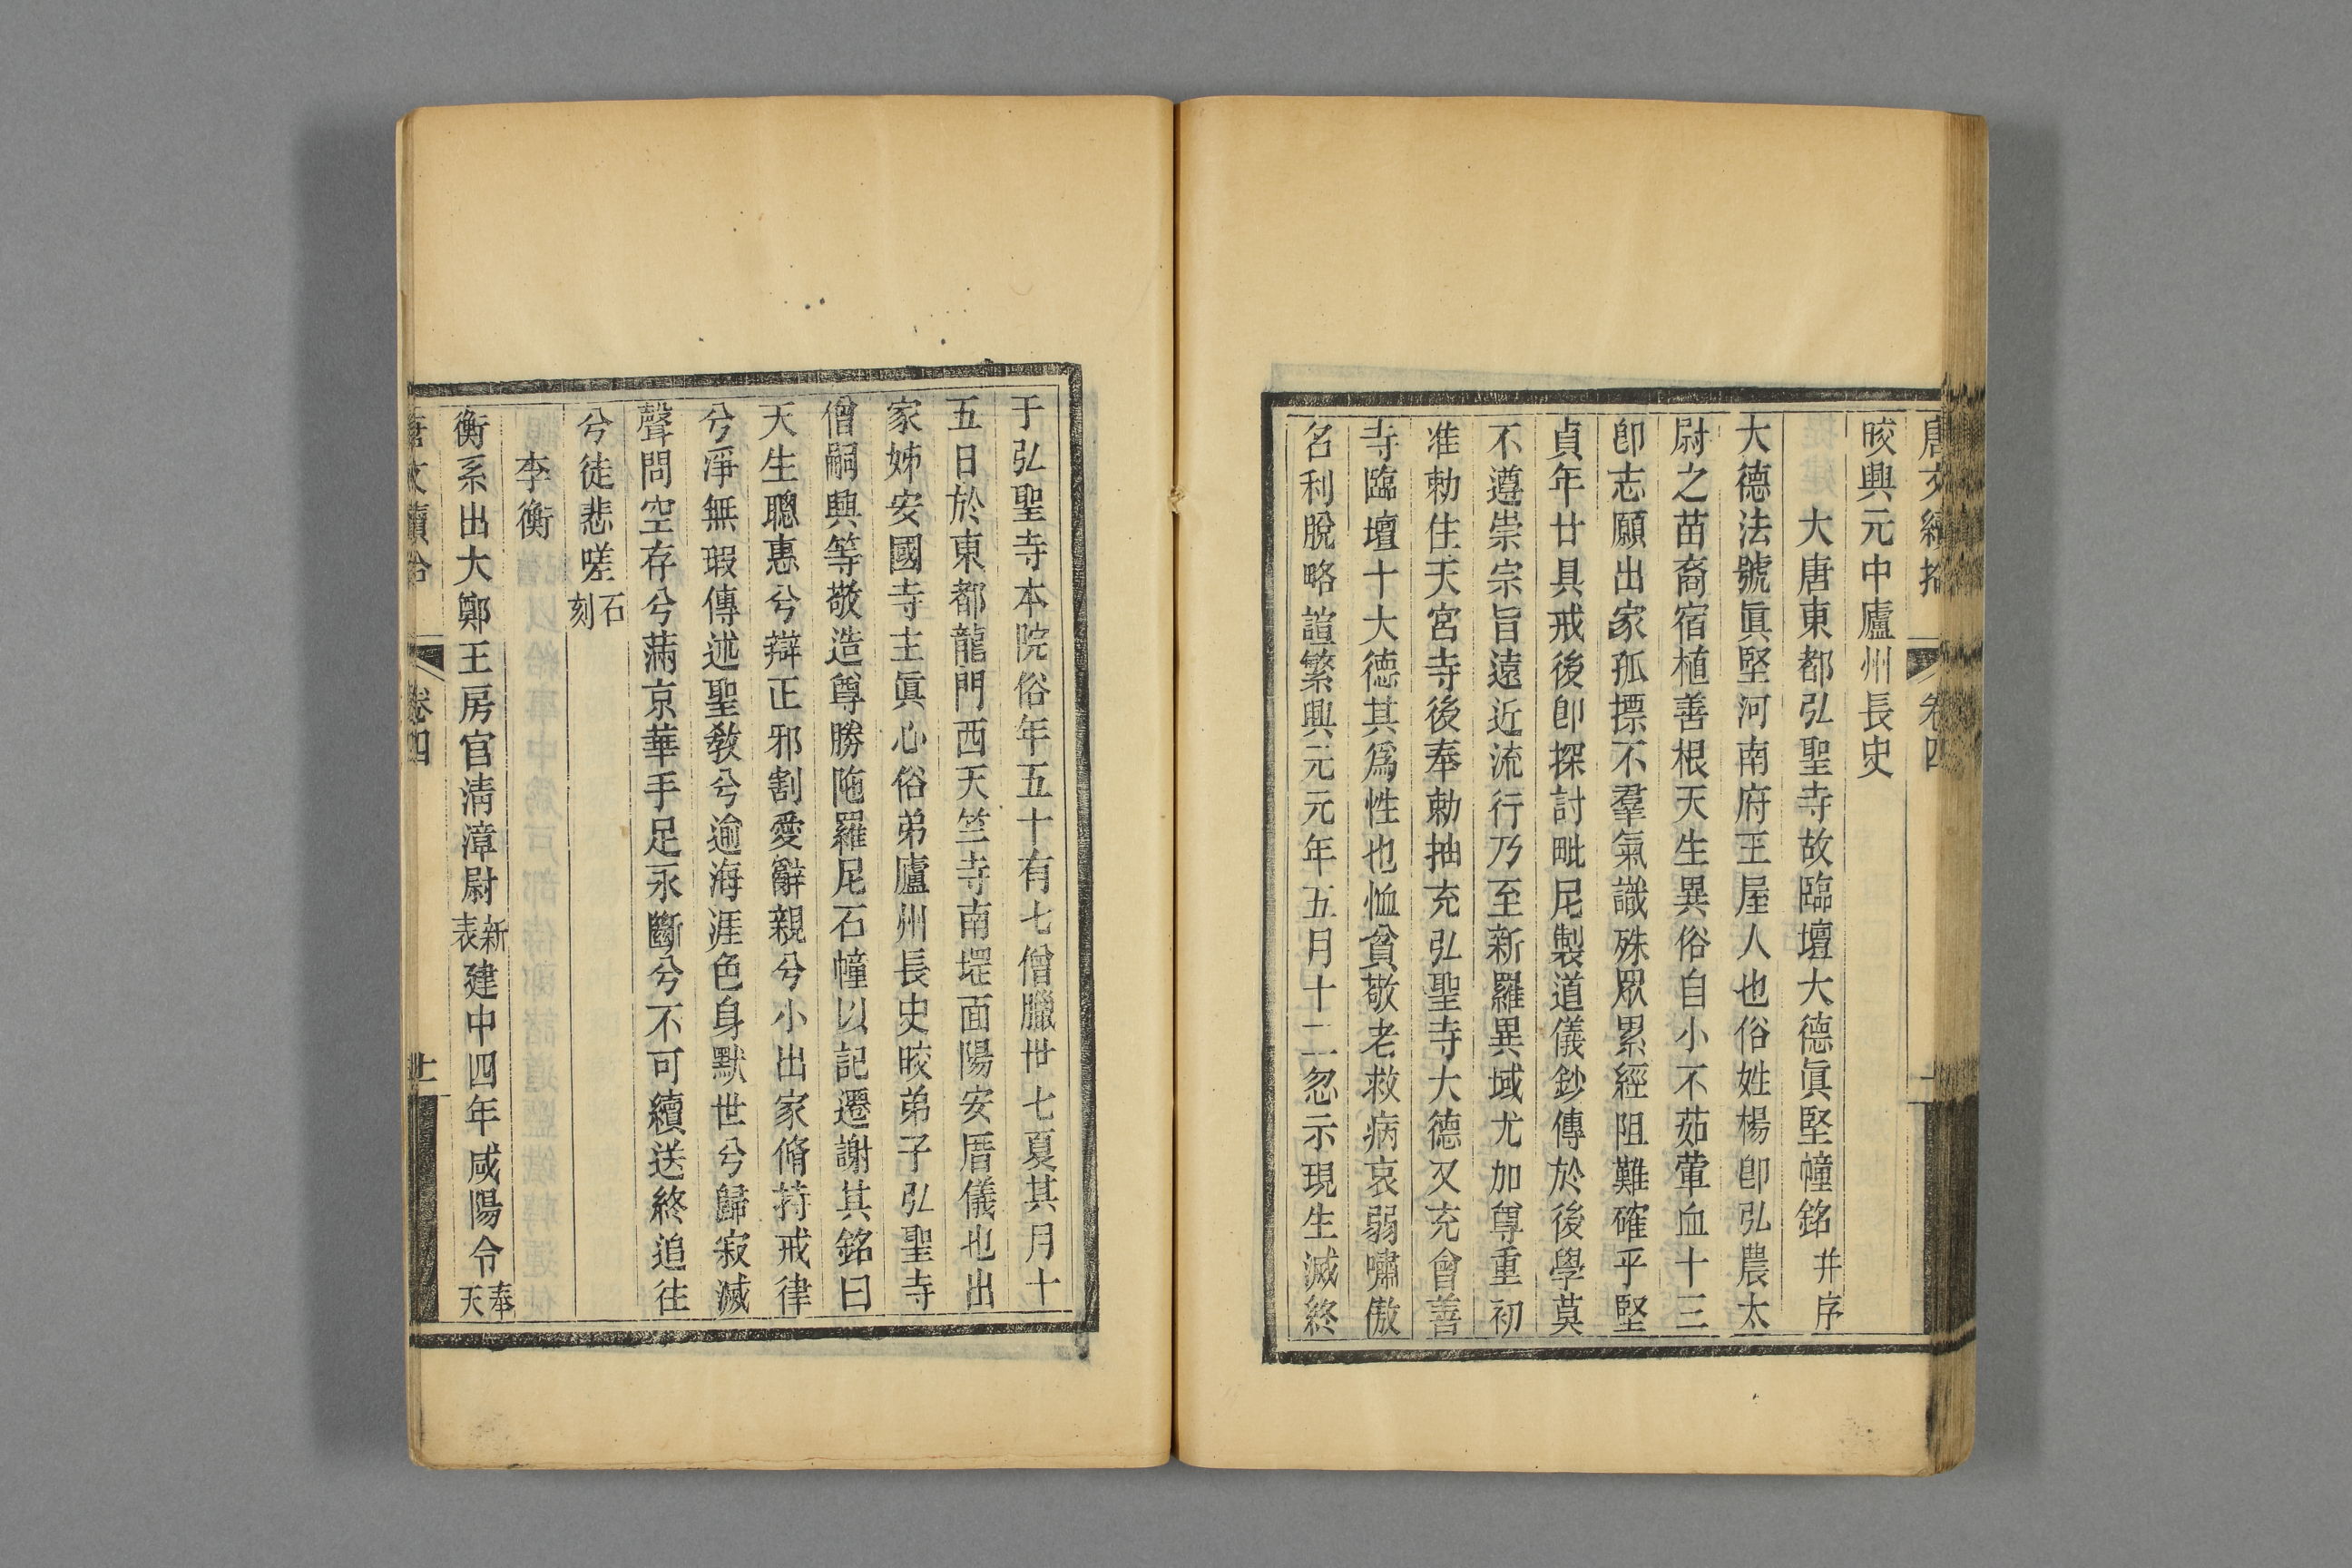 唐文續拾 卷四
晈興元中廬州長史
大唐東都弘聖寺故臨壇大德眞堅幢銘 并序
大德法號眞堅河南府王屋人也俗姓楊卽弘農太
尉之苗裔宿植善根天生異俗自小不茹葷血十三
卽志願出家孤摽不羣氣識殊眾累經阻難確乎堅
貞年廿具戒後卽探討毗尼製道儀鈔傳於後學莫
不遵崇宗旨遠近流行乃至新羅異域尤加尊重初
准勅住天宮寺後奉勅抽充弘聖寺大德又充會善
寺臨壇十大德其爲性也恤貧敬老救病哀弱嘯傲
名利脫略諠繁興元元年五月十二忽示現生滅終
于弘聖寺本院俗年五十有七僧臘卅七夏其月十
五日於東都龍門西天竺寺南塸面陽安厝儀也出
家姊安國寺主眞心俗弟廬州長史晈弟子弘聖寺
僧嗣興等敬造尊勝陁羅尼石幢以記遷謝其銘曰
天生聰惠兮辯正邪割愛辭親兮小出家脩持戒律
兮淨無瑕傳述聖敎兮逾海涯色身默世兮歸寂滅
聲問空存兮滿京華手足永斷兮不可續送終追往
兮徒悲嗟 石刻
李衡
衡系出大鄭王房官淸漳尉 新表 建中四年咸陽令 奉天
唐文續拾 卷四